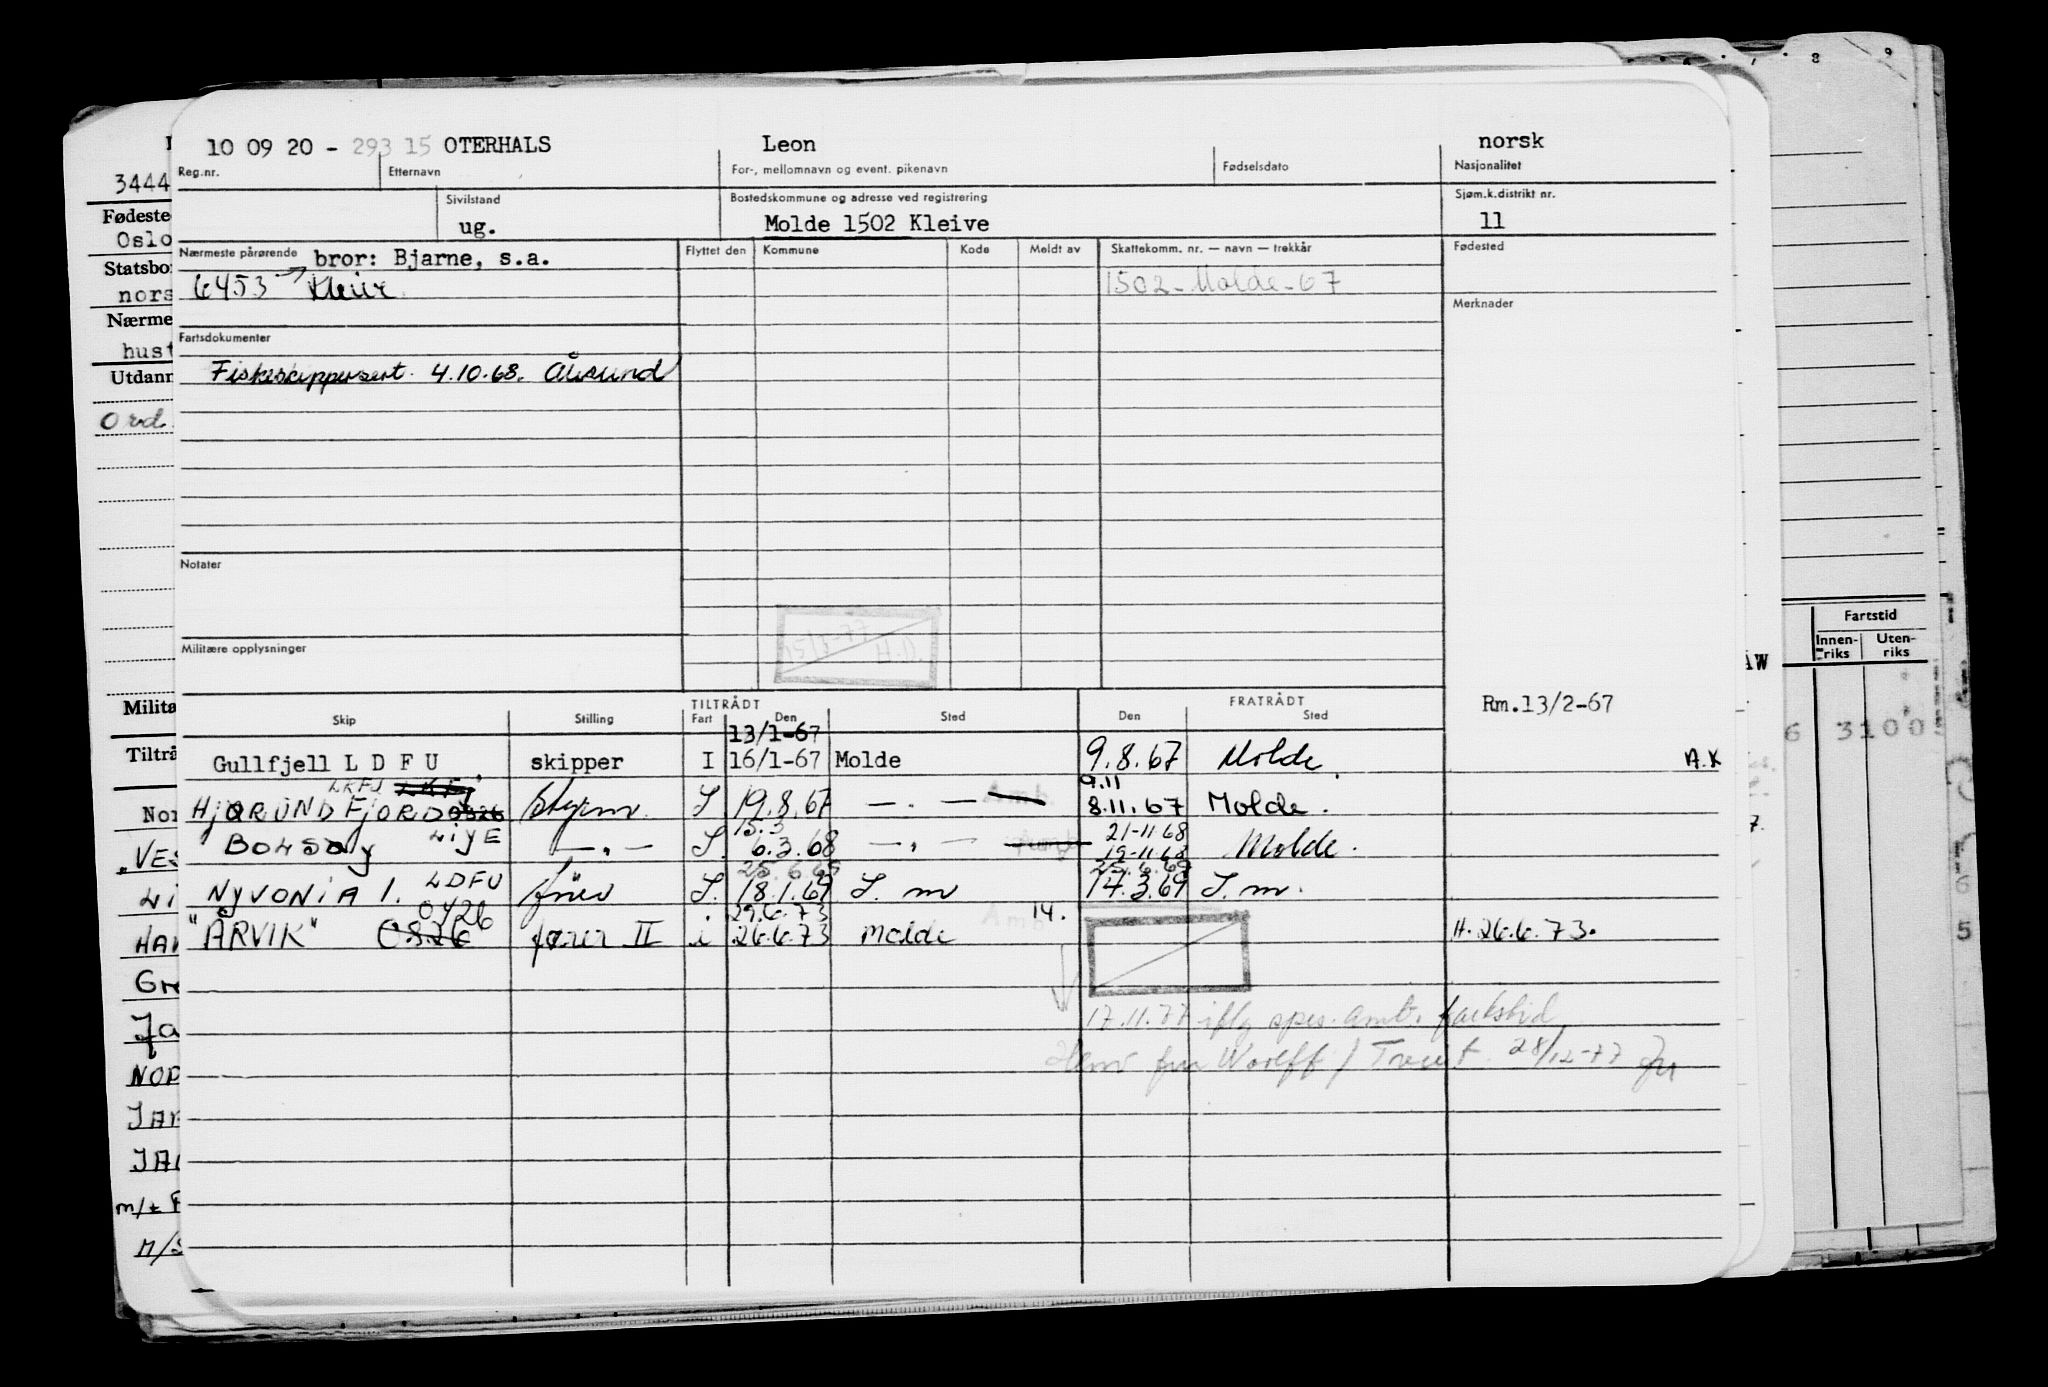 10 09 20 - 293 15 OTERHALS Leon norsk
Reg.nr. Etternavn For-, mellomnavn og event. pikenavn Fødselsdato Nasjonalitet
Sivilstand Bostedskommune og adresse ved registrering Sjøm.k.distrikt nr.
ug. Molde 1502 Kleive 11
Nærmeste pårørende bror: Bjarne, s.a. Flyttet den Kommune Kode Meldt av Skattekomm. nr. — navn — trekkår Fødested
6453 1502-Molde-67
Merknader
Fartsdokumenter
Fiskeskippersert. 4.10.68. Ålesund
Notater
15/3-77
H.O.
Militære opplysninger
TILTRÅDT FRATRÅDT
Skip Stilling Fart Den Sted Den Sted
Rm.13/2-67
13/1-67
Gullfjell L D F U skipper I 16/1-67 Molde 9.8.67 Molde. A.K
LKFJ 9.11
HJØRUNDFJORD Styrm. I 19.8.67 — . — Amb. 8.11.67 Molde.
15.3 21-11 68
BOLSØY LIYE — „ — I. 6.3.68 — „ — 19-11-68 Molde.
25.6.65 25.6.69
NYVONIA I. LDFU I. 18.1.69 I. m 14.3.69 I. m.
0426 29.6.73 Amb. 14.
"ÅRVIK" 0326 fører II i 26.6.73 Molde H. 26.6.73.
17.11.77 iflg spes. Amt. fartstid
28/12-77
3444
Fødeste
Oslo
Statsbor
nors
Nærme
hust
Utdann
Ord.
Militæ
Tiltrå
Nor
„VES
Li
HAV
Ja
NOR
JAR
JA
m/t
M/S
8 9
Fartstid
Innen-
riks
Uten-
riks
AW
6 3100
5